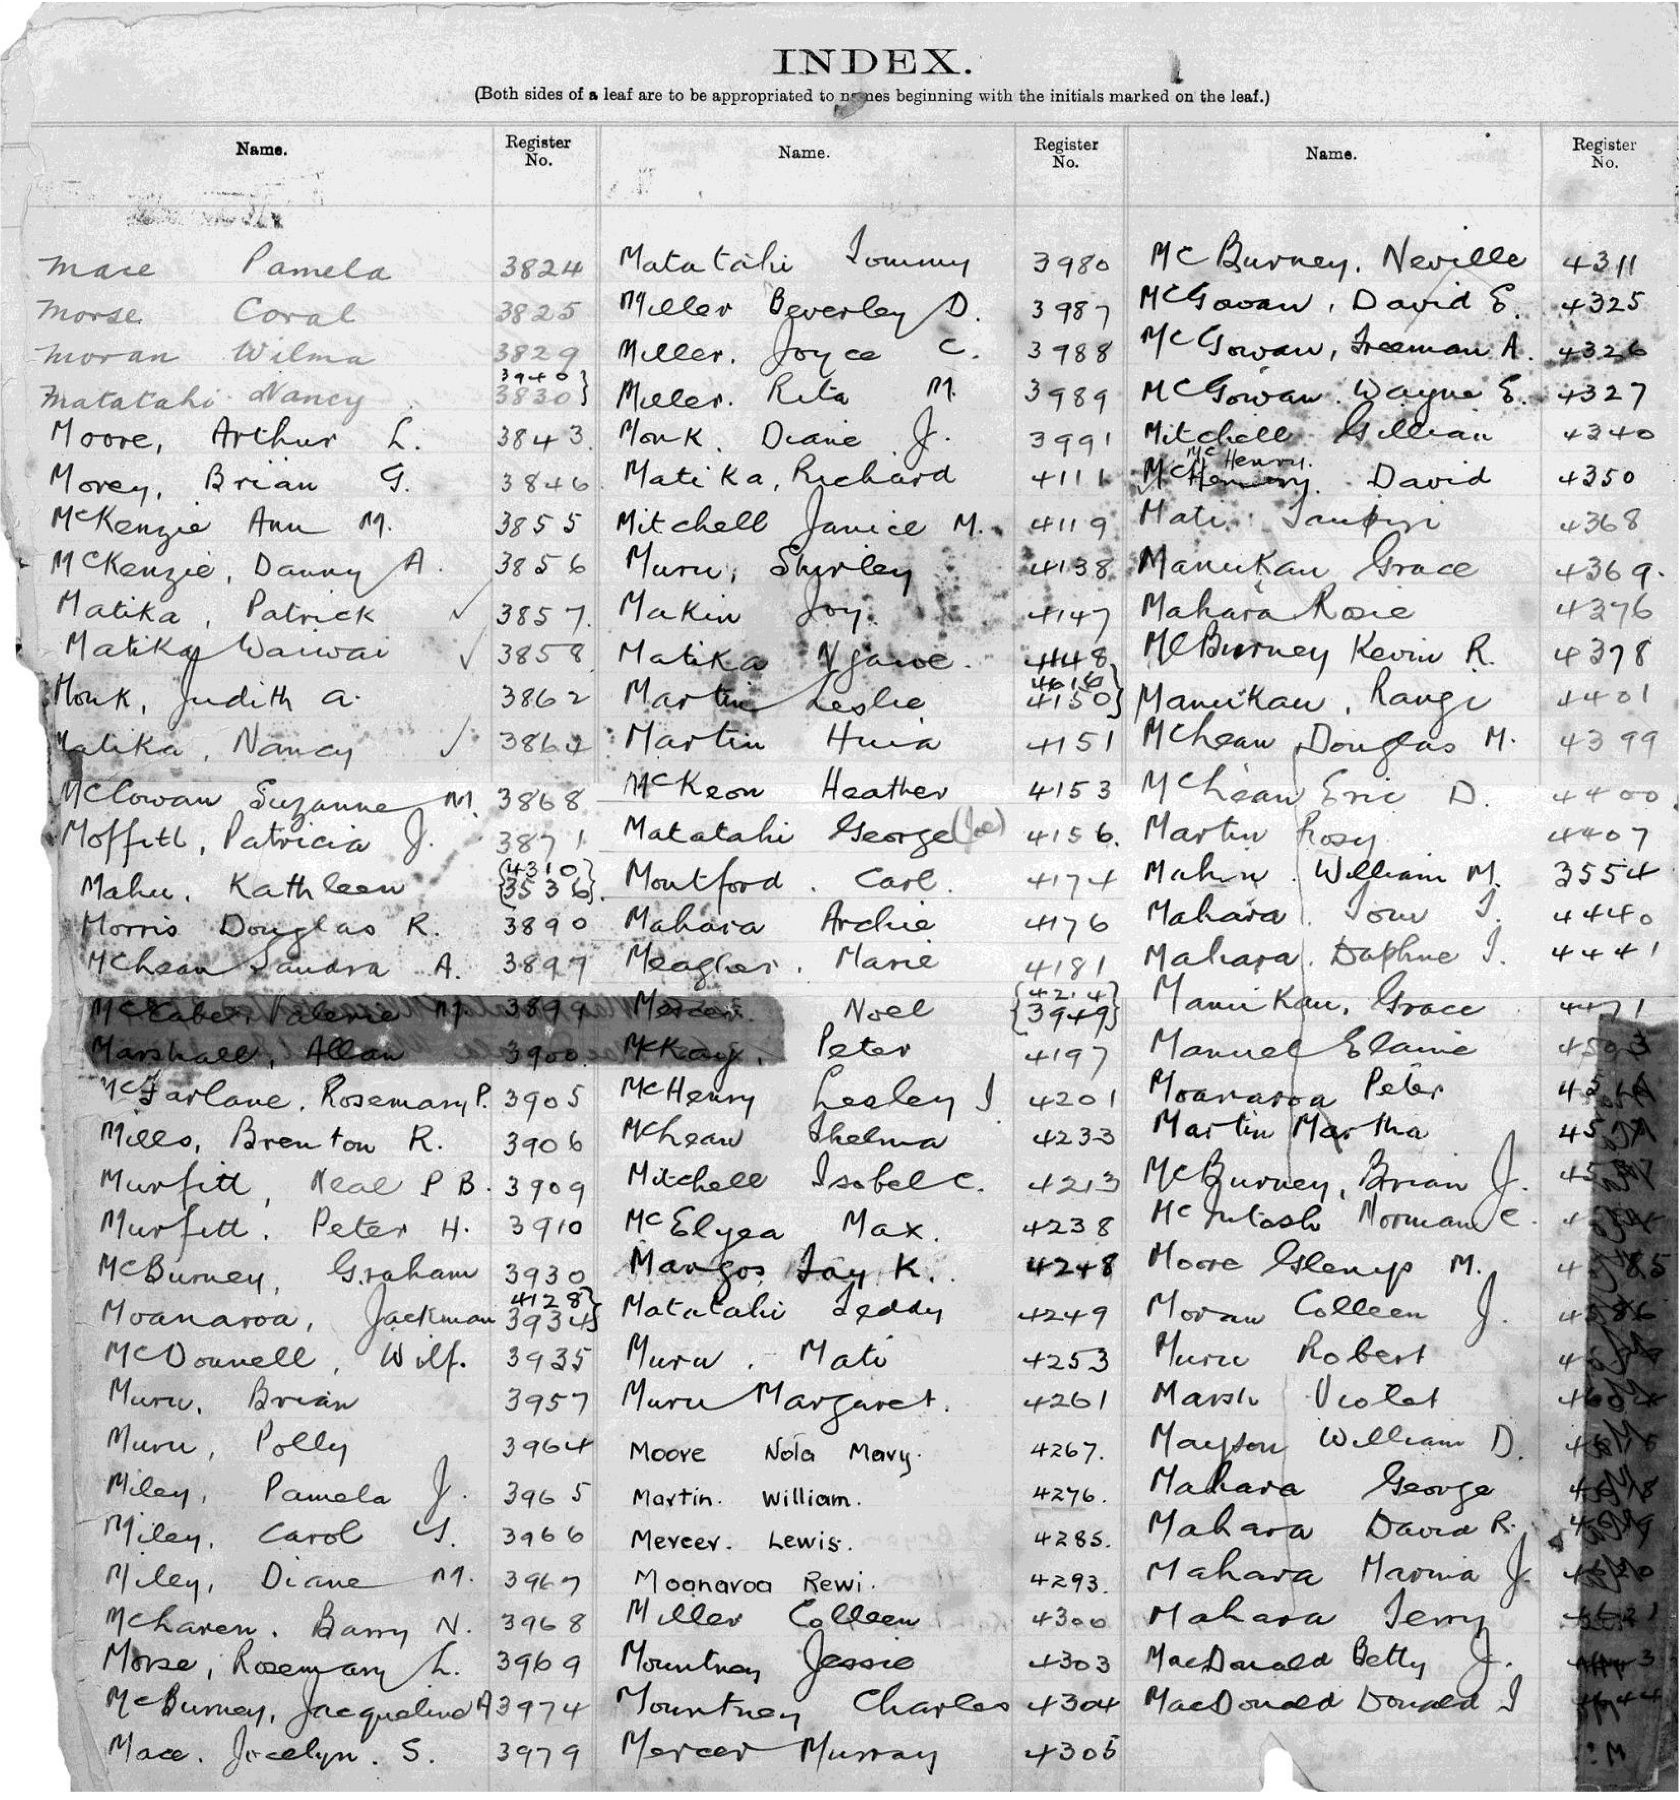 INDEX.
(Both sides of a leaf are to be appropriated to names beginning with the initials marked on the leaf.)
Name. Register No.
Mace Pamela 3824
Morse Coral 3825
Moran Wilma 3829
3940
Matatahi Nancy 3830
Moore, Arthur L. 3843
Morey, Brian G. 3846
McKenzie Ann M. 3855
McKenzie, Danny A. 3856
Matika, Patrick ✓ 3857
Matika Waiwai ✓ 3858
Monk, Judith A. 3862
Matika, Nancy ✓ 3864
McCowan Suzanne M. 3868
Moffitt, Patricia J. 3871
4310
Mahu, Kathleen 3536
Morris Douglas R. 3890
McLean Sandra A. 3897
Valerie M. 3899
Marshall, Allan 3900
McFarlane, Rosemary P. 3905
Mills, Brenton R. 3906
Murfitt, Neal P B. 3909
Murfitt, Peter H. 3910
McBurney, Graham 3930
4128
Moanaroa, Jackman 3934
McDonnell, Wilf. 3935
Muru, Brian 3957
Muru, Polly 3964
Miley, Pamela J. 3965
Miley, Carol 3966
Miley, Diane M. 3967
McLaren, Barry N. 3968
Morse, Rosemary L. 3969
McBurney, Jacqueline A 3974
Mace, Jocelyn. S. 3979
Name. Register No.
Matatahi Tommy 3980
Miller Beverley D. 3987
Miller, Joyce C. 3988
Miller, Rita M. 3989
Monk, Diane J. 3991
Matika, Richard 4111
Mitchell Janice M. 4119
Muru, Shirley 4138
Makin Joy. 4147
Matika 4148
4616
Martin Leslie 4150
Martin Huia 4151
McKeon Heather 4153
Matatahi George (Joe) 4156.
Montford. Carl. 4174
Mahara Archie 4176
Meagher, Marie 4181
4214
Mercer Noel 3949
McKay, Peter 4197
McHenry Lesley J 4201
McLean Thelma 4233
Mitchell Isobel C. 4213
McElyea Max. 4238
Mangos Jay K. 4248
Matatahi Teddy 4249
Muru. Mati 4253
Muru Margaret. 4261
Moore Nola Mary. 4267.
Martin. William. 4276.
Mercer. Lewis. 4285.
Moanaroa Rewi. 4293.
Miller Colleen 4300
Mountney Jessie 4303
Mountney Charles 4304
Mercer Murray 4305
Name. Register No.
McBurney, Neville 4311
McGowan, David E. 4325
McGowan, Freeman A. 4326
McGowan Wayne E. 4327
Mitchell Gillian 4340
McHenry.
David 4350
Mati 4368
Manukau Grace 4369.
Mahara Rosie 4376
McBurney Kevin R. 4378
Manukau, Rangi 4401
McLean Douglas M. 4399
McLean Eric D. 4400
Martin Rosy 4407
William M. 3554
Mahara Tom T. 4440
Mahara. Daphne J. 4441
Manukau, Grace 4471
Manuel Elaine 4503
Moanaroa Peter
Martin Martha
McBurney, Brian J.
McIntosh Norman C.
Moore Glenys M.
Moran Colleen J. 4586
Muru Robert
Marsh Violet
Mayson William D.
Mahara George
Mahara David R.
Mahara Marina J.
Mahara Terry
MacDonald Betty J.
MacDonald Donald J